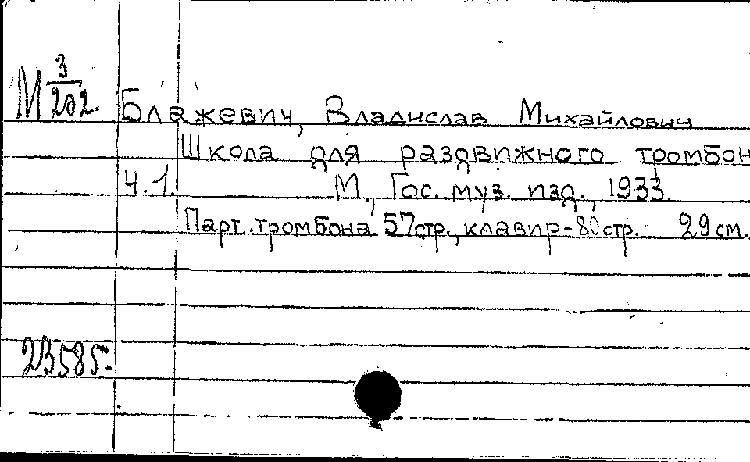 М 3/202
Блажевич, Владислав Михайлович
Школа для раздвижного тромбон
Ч. 1. М., Гос. муз. изд., 1933.
Парт. тромбона 57 стр., клавир - стр. 29 см.
23585.